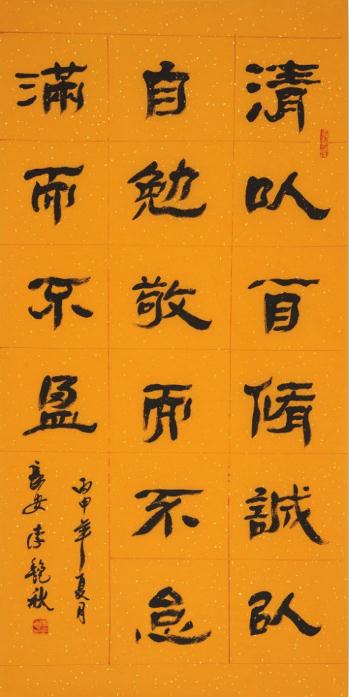 清以自脩誠以
自勉敬而不怠
滿而不盈
丙申年夏月
長安李秋